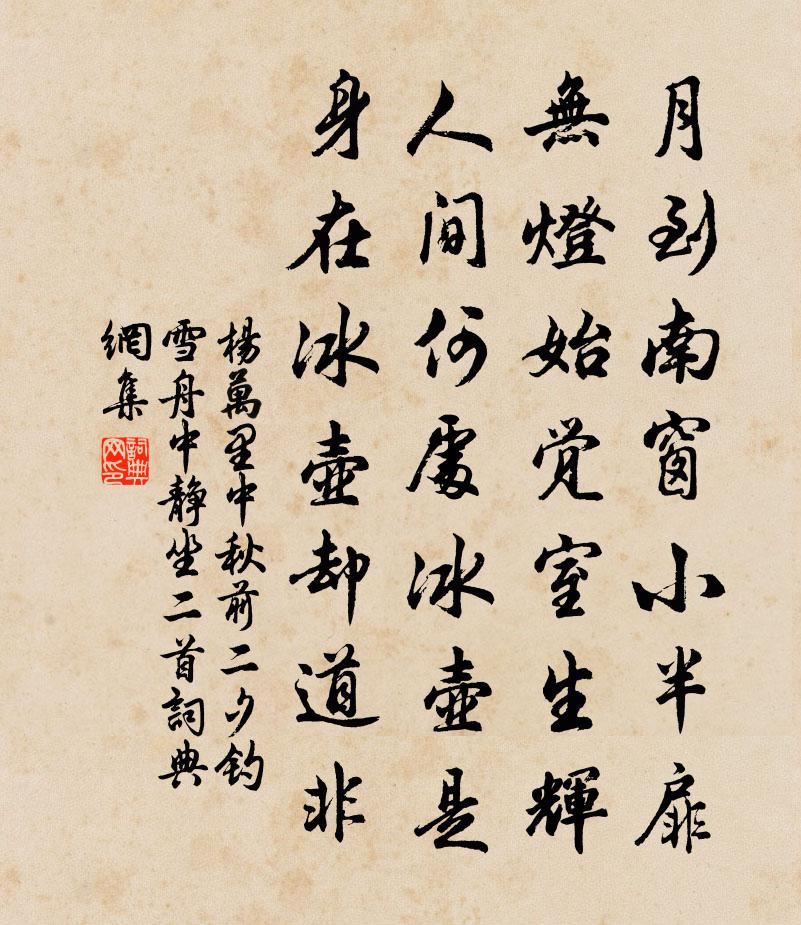 月到南窗小半扉
無燈始覚室生輝
人間何處冰壺是
身在冰壺却道非
楊萬里中秋前二夕釣
雪舟中静坐二首詞典
網集
詞典
网印